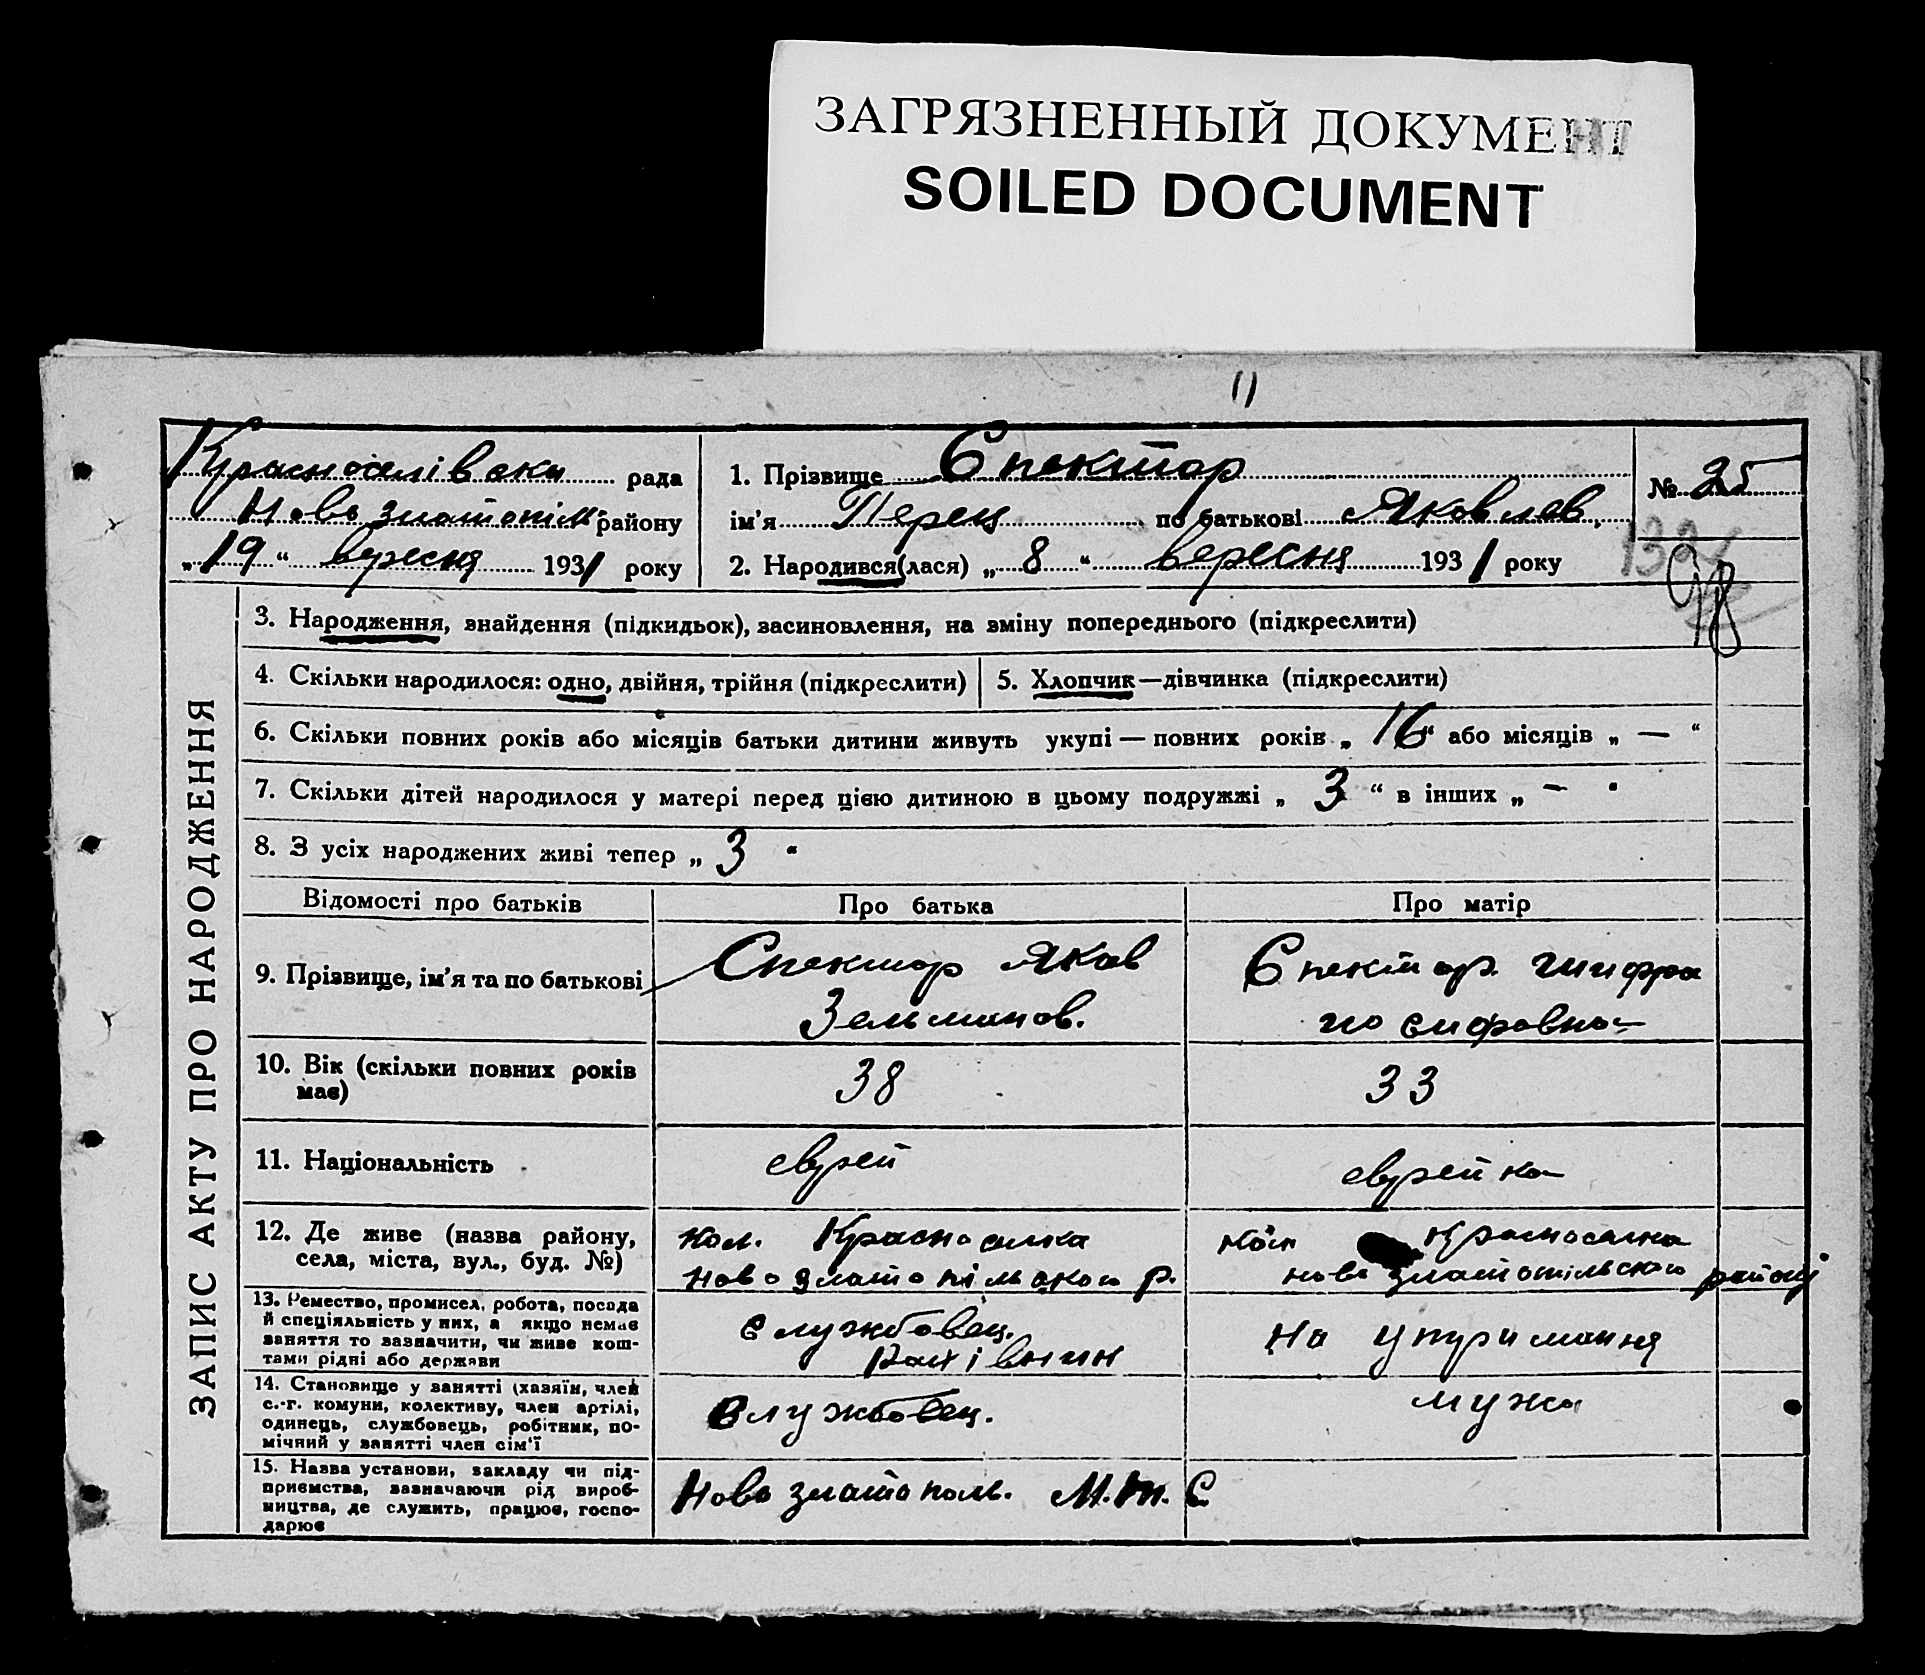 ЗАГРЯЗНЕННЫЙ ДОКУМЕНТ
SOILED DOCUMENT
11
Красноселівска рада
Ново златопіл районy
„19“ вересня 1931 року
1. Прізвище Спектор
ім'я Перец по батькові Яковлев.
2. Народився(лася) „8“ вересня 1931 року
№ 25
98
ЗАПИС АКТУ ПРО НАРОДЖЕННЯ
3. Народження, знайдення (підкидьок), засиновлення, на зміну попереднього (підкреслити)
4. Скільки народилося: одно, двійня, трійня (підкреслити)
5. Хлопчик—дівчинка (підкреслити)
6. Скільки повних років або місяців батьки дитини живуть укупі — повних років „ 16 “ або місяців „ — “
7. Скільки дітей народилося у матері перед цією дитиною в цьому подружжі „ 3 “ в інших „ — “
8. З усіх народжених живі тепер „ 3 “
Відомості про батьків
Про батька
Про матір
9. Прізвище, ім'я та по батькові
Спектор Яков
Зельманов.
Спектор Шифра
Иосифовна
10. Вік (скільки повних років
має)
38
33
11. Національність
еврей
еврейка
12. Де живе (назва району,
села, міста, вул., буд. №)
кол. Красноселка
Ново златопільского р.
кол Красноселка
Ново златопільского району
13. Ремество, промисел, робота, посада
й спеціяльність у них, а якщо немає
заняття то зазначити, чи живе кош-
тами рідні або держави
Службовец.
Рахівник
На утримання
14. Становище у занятті (хазяїн, член
с.-г. комуни, колективу, член артілі,
одинець, службовець, робітник, по-
мічний у занятті член сім'ї
Службовец.
мужа
15. Назва установи, закладу чи під-
приємства, зазначаючи рід вироб-
ництва, де служить, працює, госпо-
дарює
Ново златополь. М.т.С